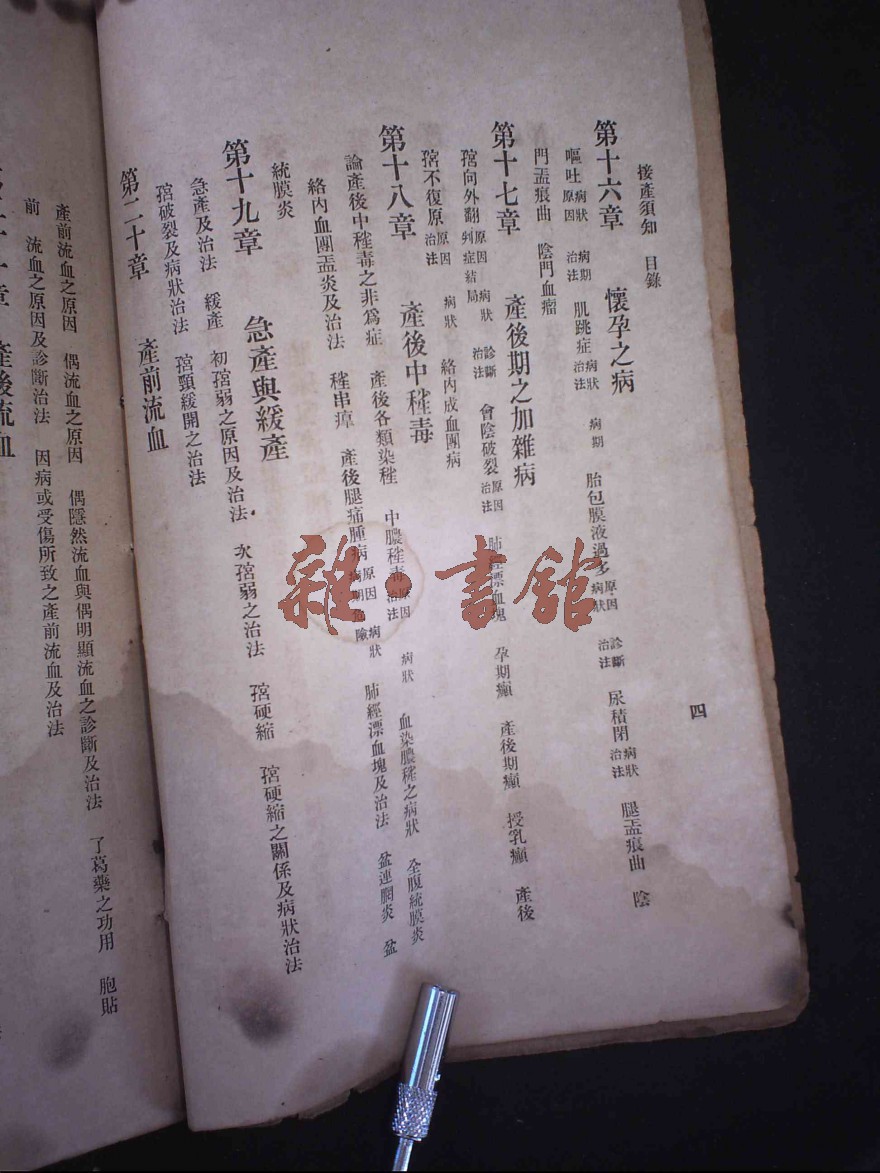 接產須知 目錄
四
第十六章 懷孕之病
嘔吐 病狀 原因 病期 治法 肌跳症 病狀 治法 病期 胎包膜液過多 原因 病狀 診斷 治法 尿積閉 病狀 治法 腿盂痕曲 陰
門盂痕曲 陰門血瘤
第十七章 產後期之加雜病
向外翻 原因 判症結局 病狀 診斷 治法 會陰破裂 原因 治法 肺經漂血塊 孕期癲 產後期癲 授乳癲 產後
不復原 原因 治法 病狀 絡內成血團病
第十八章 產後中毒
論產後中毒之非爲症 產後各類染 中膿毒 原因 治法 病狀 血染膿之病狀 全腹統膜炎
絡內血團盂炎及治法 串瘴 產後腿痛腫病 原因 病期 病狀 危險 肺經漂血塊及治法 盆連膶炎 盆
統膜炎
第十九章 急產與緩產
急產及治法 緩產 初弱之原因及治法 次弱之治法 硬縮 硬縮之關係及病狀治法
破裂及病狀治法 頸緩開之治法
第二十章 產前流血
產前流血之原因 偶流血之原因 偶隱然流血與偶明顯流血之診斷及治法 了葛藥之功用 胞貼
前 流血之原因及診斷治法 因病或受傷所致之產前流血及治法
產後流血
雜·書館